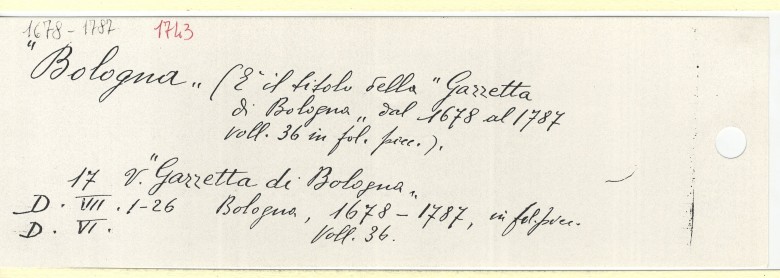 1678-1787 1743
"Bologna„ (È il titolo della "Gazzetta
di Bologna„ dal 1678 al 1787
voll. 36 in fol. picc.).
17 V. "Gazzetta di Bologna„
D. VIII. 1-26 Bologna, 1678-1787, in fol. picc.
D. VI. Voll. 36.